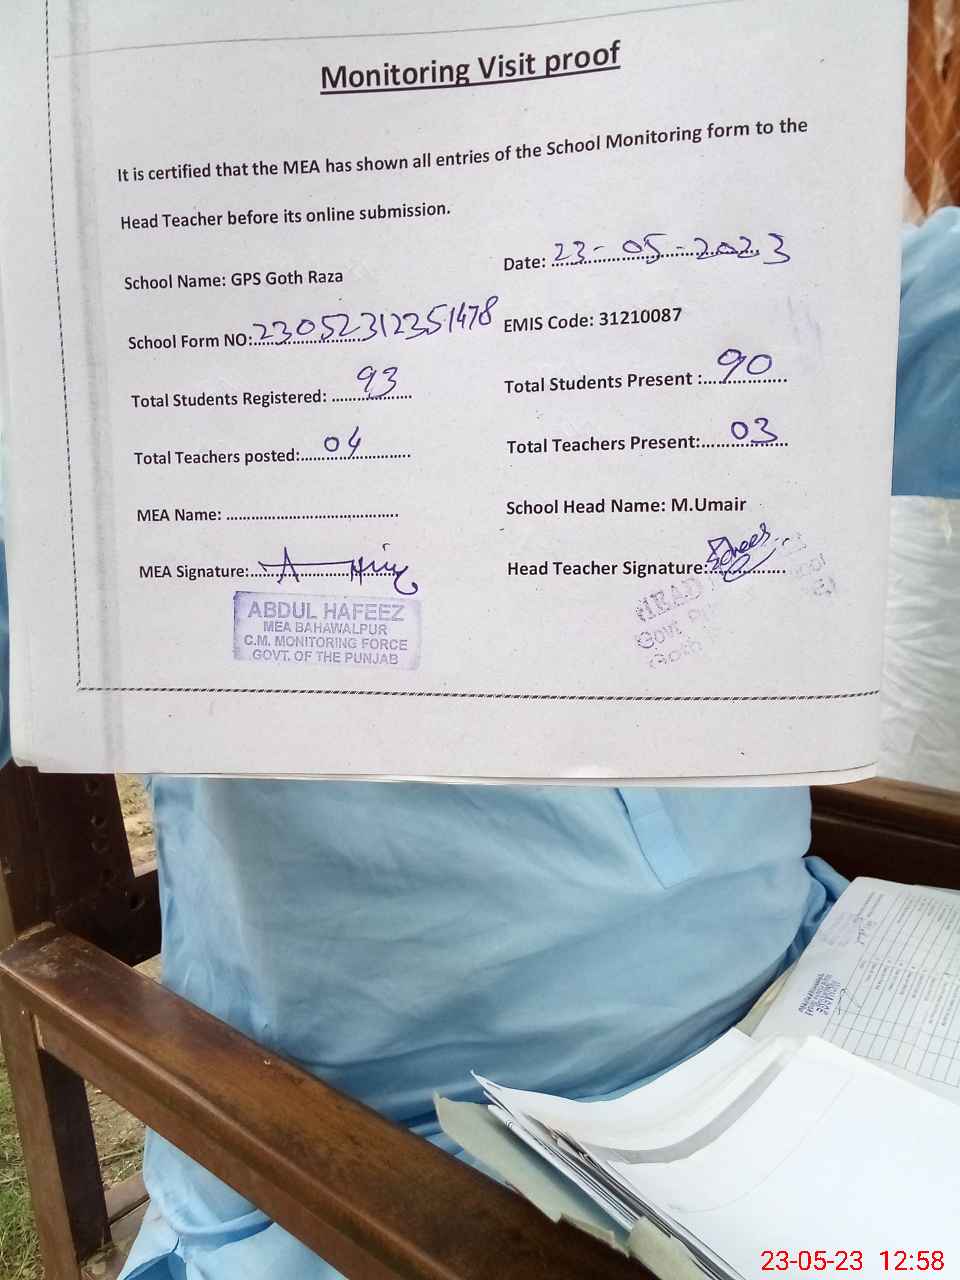 Monitoring Visit proof
It is certified that the MEA has shown all entries of the School Monitoring form to the
Head Teacher before its online submission.
School Name: GPS Goth Raza
Date: 23-05-2023
School Form NO: 23052312351478
EMIS Code: 31210087
Total Students Registered: 93
Total Students Present : 90
Total Teachers posted: 04
Total Teachers Present: 03
MEA Name:
School Head Name: M.Umair
MEA Signature:
Head Teacher Signature:
ABDUL HAFEEZ
MEA BAHAWALPUR
C.M. MONITORING FORCE
GOVT. OF THE PUNJAB
HEAD
Govt.
Goth
23-05-23 12:58